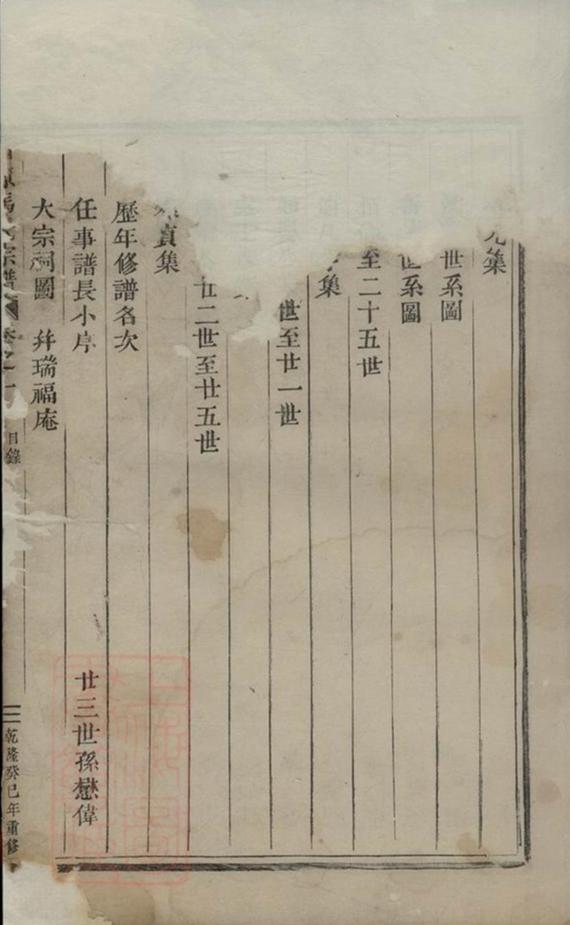 元集
世系圖
世系圖
至二十五世
集
世至廿一世
廿二世至廿五世
貞集
歷年修譜名次
任事譜長小序 廿三世孫懋偉
大宗祠圖 并瑞福庵
宗譜 卷之一 目錄 乾隆癸巳年重修